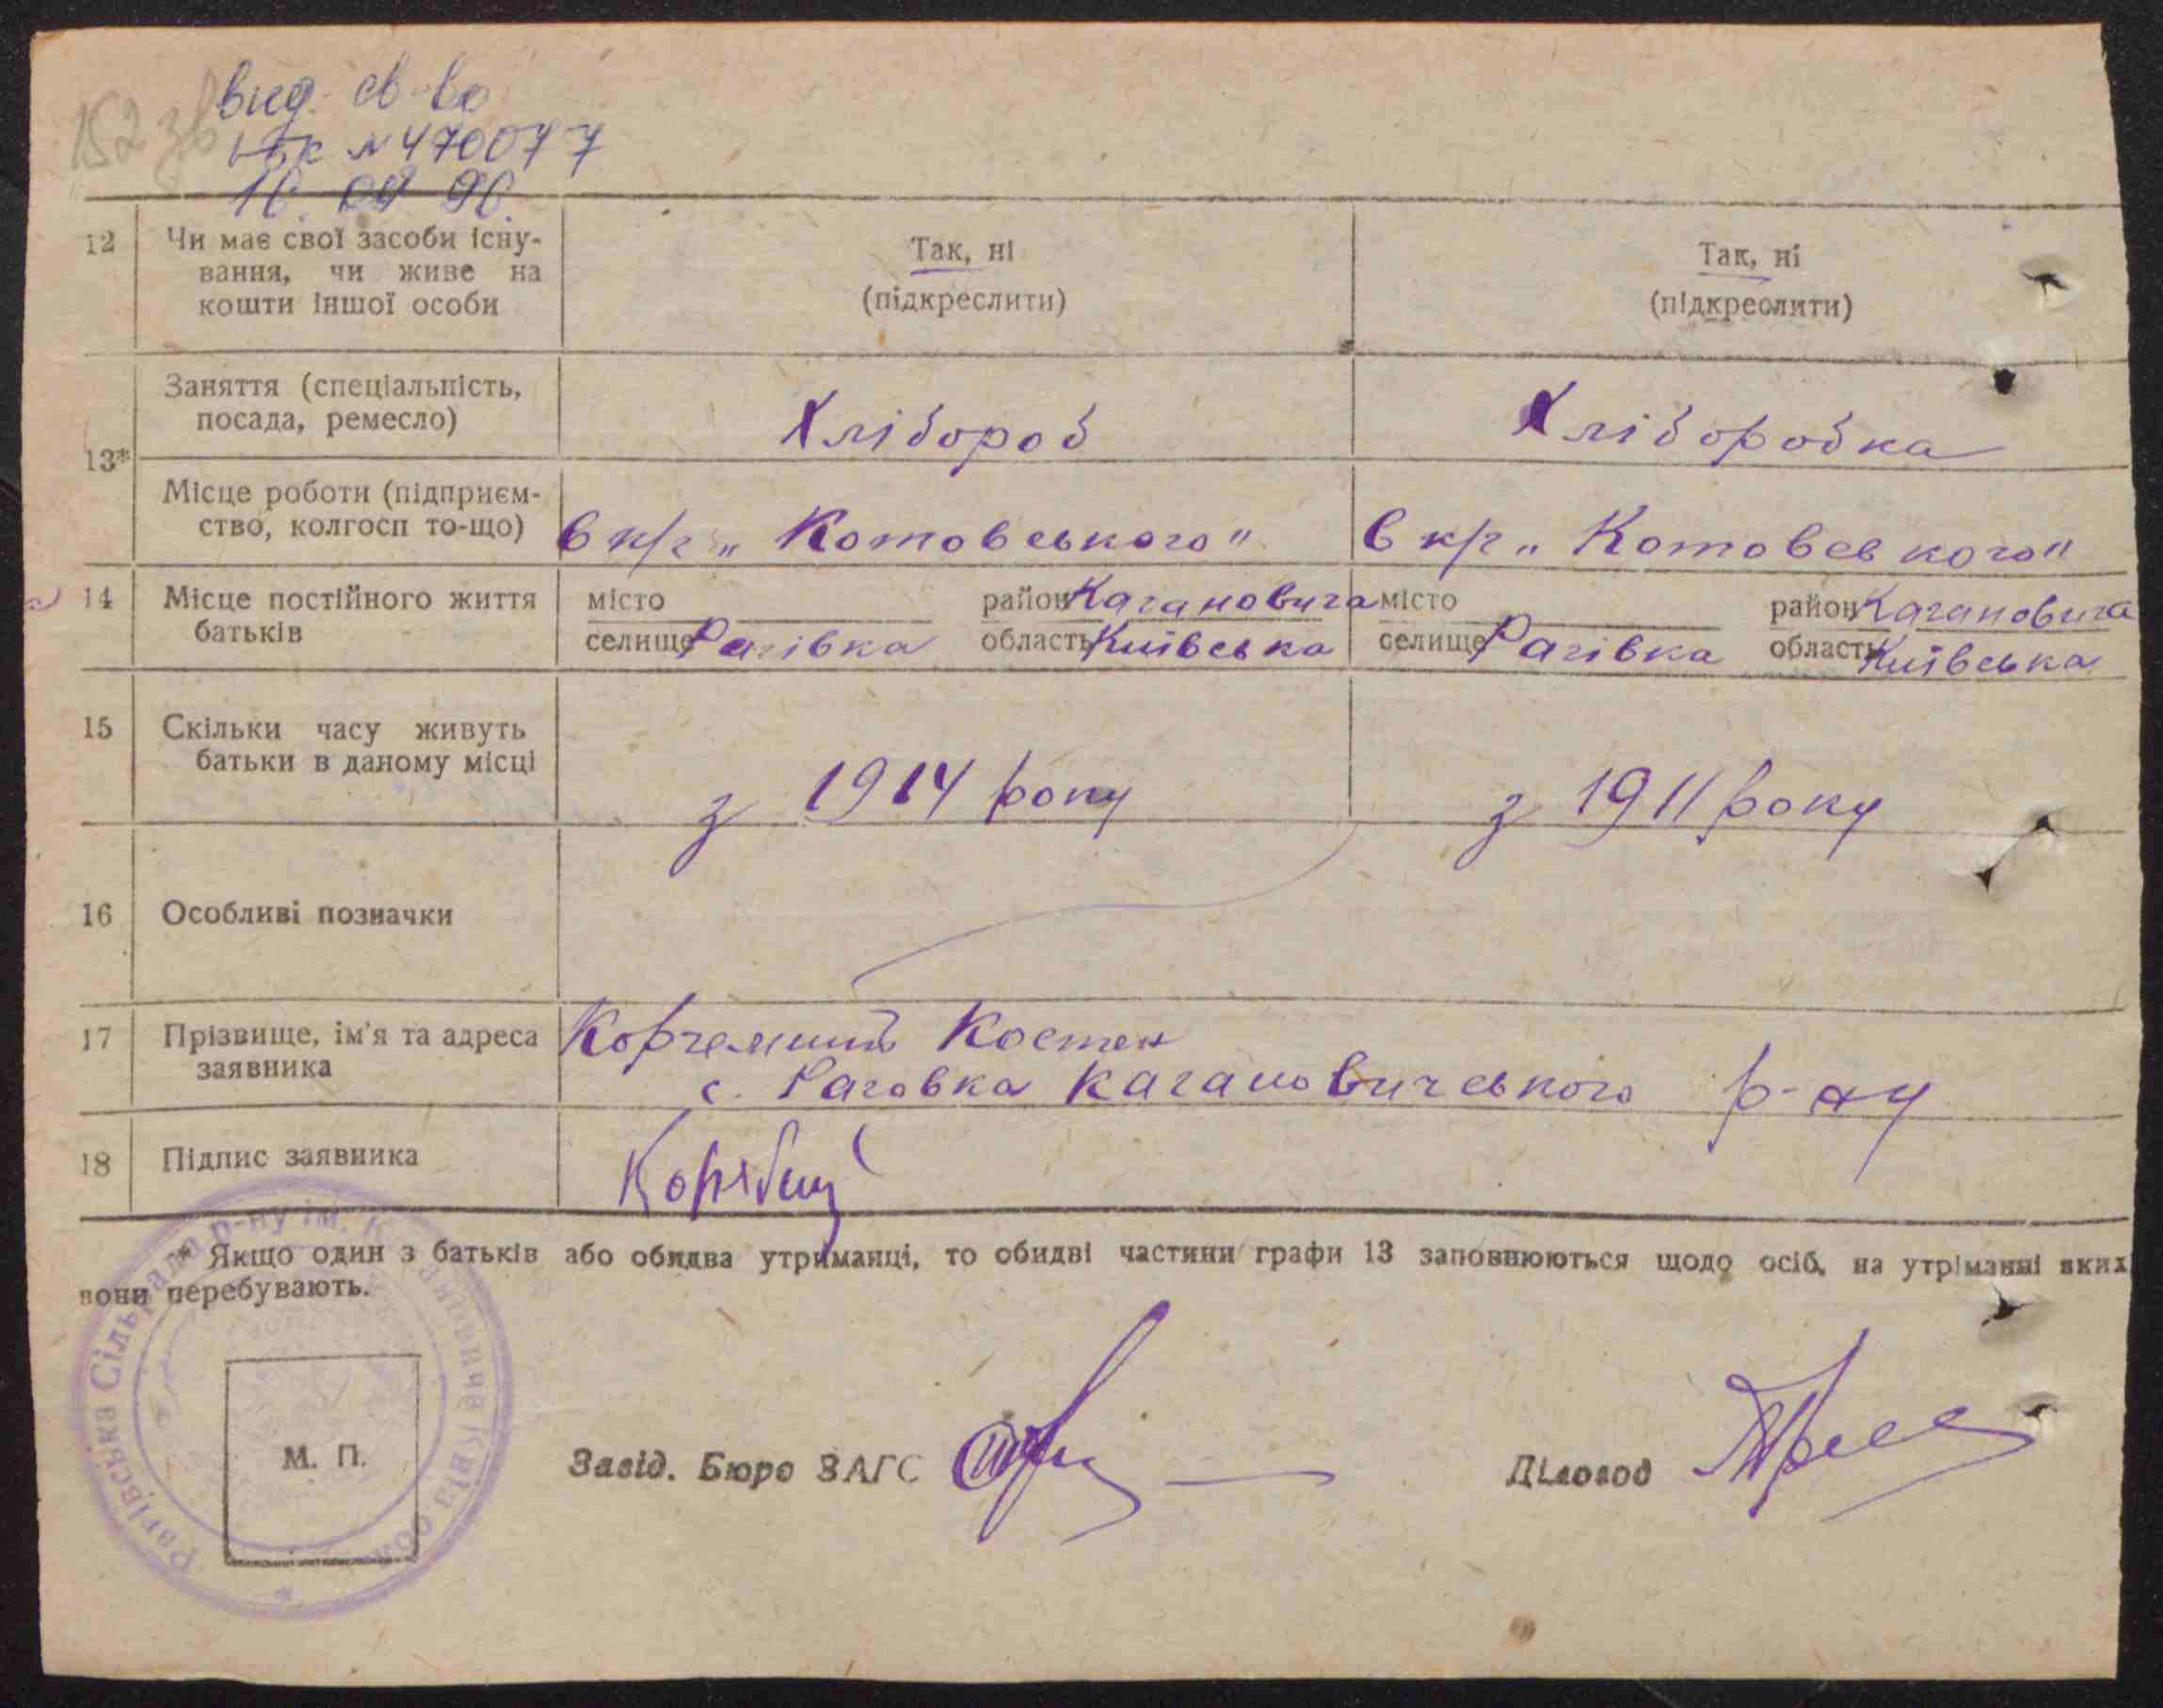 152 зв
вид. св-во
№ 470077
12 Чи має свої засоби існу-
вання, чи живе на
кошти іншої особи
Так, ні
(підкреслити)
Так, ні
(підкреслити)
13*
Заняття (спеціальність,
посада, ремесло)
Хлібороб
Хліборобка
Місце роботи (підприєм-
ство, колгосп то-що)
В к/г „Котовського"
В к/г „Котовського"
14 Місце постійного життя
батьків
місто район Кагановича
селище Рагівка область Київська
місто район Кагановича
селище Рагівка область Київська
15 Скільки часу живуть
батьки в даному місці
з 1914 року
з 1911 року
16 Особливі позначки
17 Прізвище, ім'я та адреса
заявника
Костен
с. Раговка Кагановичського р-ну
18 Підпис заявника
* Якщо один з батьків або обидва утриманці, то обидві частини графи 13 заповнюються щодо осіб, на утріманні яких
вони перебувають.
Рагівська Сільрада р-ну ім. Кагановича Київ. обл.
М. П.
Завід. Бюро ЗАГС
Діловод